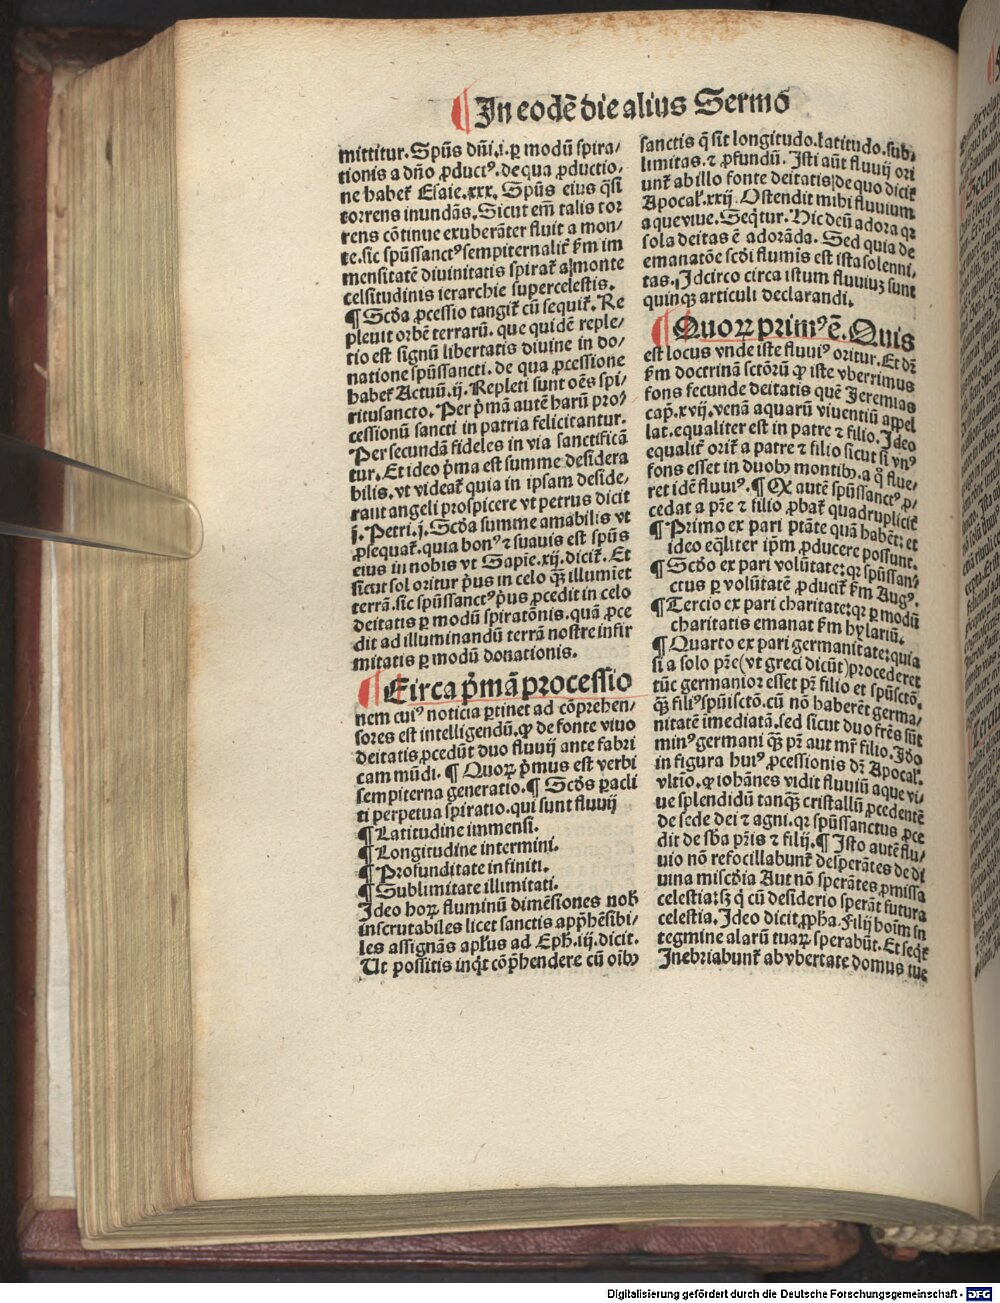 ¶ In eodē die alius Sermo
mittitur. Spūs dn̄i .i. ꝑ modū spira/
tionis a dn̄o ꝓductꝰ. de qua ꝓductio/
ne habet̉ Esaie. xxx. Spūs eius q̄si
torrens inundās. Sicut em̄ talis tor
rens cōtinue exuberāter fluit a mon/
te. sic spūssanctꝰ sempiternalit̉ ẜm im
mensitatē diuinitatis spirat̉ a monte
celsitudinis ierarchie supercelestis.
¶ Scd̄a ꝓcessio tangit̉ cū sequit̉. Re
pleuit orbē terrarū. que quidē reple/
tio est signū libertatis diuine in do/
natione spūssancti. de qua ꝓcessione
habet̉ Actuū. ij. Repleti sunt oēs spi/
ritusancto. Per p̄mā autē harū pro/
cessionū sancti in patria felicitantur.
Per secundā fideles in via sanctificā
tur. Et ideo p̄ma est summe desidera
bilis. vt videat̉ quia in ipsam deside/
rant angeli prospicere vt petrus dicit
j. Petri. j. Scd̄a summe amabilis vt
ꝓsequat̉. quia bonꝰ ⁊ suauis est spūs
eius in nobis vt Sapie. xij. dicit̉. Et
sicut sol oritur p̄us in celo q̄ꝫ illumiet
terrā. sic spūssanctꝰ p̄us ꝓcedit in celo
deitatis ꝑ modū spiratōnis. quā ꝓce
dit ad illuminandū terrā nostre infir
mitatis ꝑ modū donationis.
¶ Circa p̄mā processio
nem cuiꝰ noticia ꝑtinet ad cōprehen/
sores est intelligendū. ꝙ de fonte viuo
deitatis ꝓcedūt duo fluuij ante fabri
cam mūdi. ¶ Quoꝝ p̄mus est verbi
sempiterna generatio. ¶ Scd̄s ꝑacli
ti perpetua spiratio. qui sunt fluuij
¶ Latitudine immensi.
¶ Longitudine intermini.
¶ Profunditate infiniti.
¶ Sublimitate illimitati.
Ideo hoꝝ fluminū dimēsiones nob̄
inscrutabiles licet sanctis app̄hēsibi/
les assignās apl̉us ad Eph̄. iij. dicit.
Ut possitis inq̇t cōp̄hendere cū oib̄ꝫ
sanctis q̄ sit longitudo. latitudo. sub/
limitas. ⁊ ꝓfundū. Isti aūt fluuij ori
unt̉ ab illo fonte deitatis de quo dicit̉
Apocal̉. xxij. Ostendit mihi fluuium
aque viue. Seq̇tur. Hic deū adora qꝛ
sola deitas ē adorāda. Sed quia de
emanatōe scd̄i flumīs est ista solenni/
tas. Idcirco circa istum fluuiuꝫ sunt
quinqꝫ articuli declarandi.
¶ Quoꝝ primꝰ ē. Quis
est locus vnde iste fluuiꝰ oritur. Et dꝛ̄
ẜm doctrinā sctōrū ꝙ iste vberrimus
fons fecunde deitatis quē Jeremias
cap. xvij. venā aquarū viuentiū appel
lat. equaliter est in patre ⁊ filio. Ideo
equalit̉ orit̉ a patre ⁊ filio sicut si vnꝰ
fons esset in duob̄ꝫ montib̄ꝫ. a q̇ flue/
ret idē fluuiꝰ. ¶ Qꝫ autē spūssanctꝰ ꝓ/
cedat a pr̄e ⁊ filio ꝓbat̉ quadruplicit̉
¶ Primo ex pari ptāte quā habēt: et
ideo eq̄liter ip̄m ꝓducere possunt.
¶ Scd̄o ex pari volūtate: qꝛ spūssan/
ctus ꝑ volūtatē ꝓducit̉ ẜm Augꝰ.
¶ Tercio ex pari charitate: qꝛ ꝑ modū
charitatis emanat ẜm hylariū.
¶ Quarto ex pari germanitate: quia
si a solo pr̄e (vt greci dicūt) procederet
tūc germanior esset pr̄ filio et spūsctō.
q̄ꝫ filiꝰ spūisctō. cū nō haberēt germa/
nitatē imediatā. sed sicut duo fr̄es sūt
minꝰ germani q̄ꝫ pr̄ aut mr̄ filio. Id̄o
in figura huiꝰ ꝓcessionis dꝛ̄ Apocal̉.
vltīo. ꝙ iohānes vidit fluuiū aque vi/
ue splendidū tanq̄ꝫ cristallū ꝓcedentē
de sede dei ⁊ agni. qꝛ spūssanctus ꝓce
dit de sb̄a pr̄is ⁊ filij. ¶ Isto autē flu/
uio nō refocillabunt̉ desperātes de di
uina misc̄dia Aut nō sperātes ꝓmissa
celestia: sꝫ q̇ cū desiderio sperāt futura
celestia. Ideo dicit ꝓph̄a. Filij hoim̄ in
tegmine alarū tuaꝝ sperabūt. Et seq̇t̉
Inebriabunt̉ ab vbertate domus tue
Digitalisierung gefördert durch die Deutsche Forschungsgemeinschaft - DFG